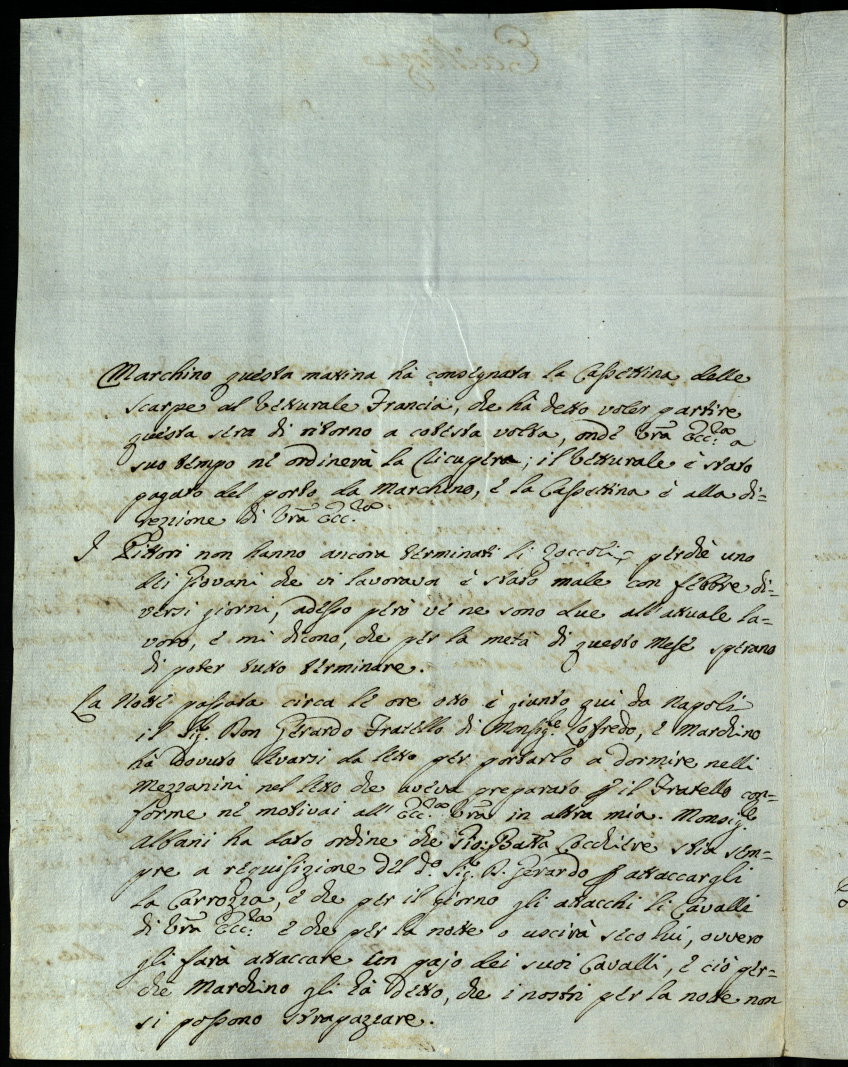 Marchino questa mattina hà consegnata la Cassettina delle
scarpe al Vetturale Francia, che hà detto voler partire
questa sera di ritorno a cotesta volta, onde Vrã Ecc:za a
suo tempo nè ordinerà la ricupera; il Vetturale è stato
pagato del porto da Marchino, e la Cassettina è alla di=
rezione di Vrã Ecc:za
I Pittori non hanno ancora terminati li Zoccoli, perchè uno
dei Giovani che vi lavorava è stato male con febbre di=
versi giorni, adesso però vè ne sono due all'attuale la=
voro, e mi dicono, che per la metà di questo Mese sperano
di poter tutto terminare.
La Notte passata circa le ore otto è giunto qui da Napoli
il Sig.e Don Gerardo Fratello di Monsig.e Lofredo, e Marchino
hà dovuto levarsi da letto per portarlo a dormire nelli
Mezzanini nel letto che aveva preparato p il Fratello con=
forme nè motivai all'Ecc:za Vrã in altra mia. Monsig.e
Albani ha dato ordine che Gio: Batta Cocchiere stia sem=
pre a requisizione del d.o Sig.e D. Gerardo p attaccargli
la Carrozza, e che per il giorno gli attacchi li Cavalli
di Vrã Ecc:za e che per la notte o uscirà seco lui, ovvero
gli farà attaccare un pajo dei suoi Cavalli, e ciò per=
che Marchino gli hà detto, che i nostri per la notte non
si possono strapazzare.